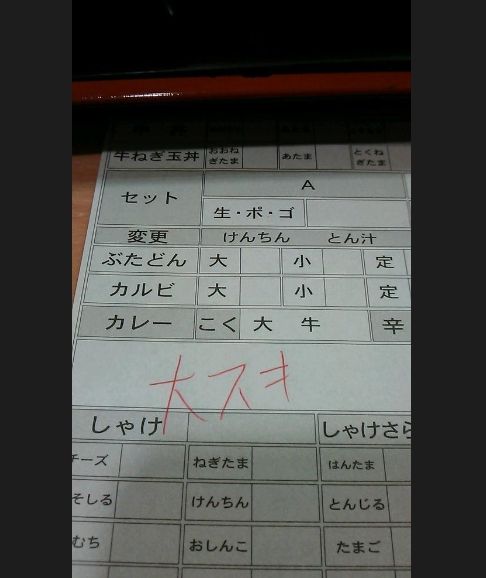 牛ねぎ玉丼 おおねぎたま あたま とくねぎたま
セット A
生・ポ・ゴ
変更 けんちん とん汁
ぶたどん 大 小 定
カルビ 大 小 定
カレー こく 大 牛 辛
大スキ
しゃけ しゃけさら
チーズ ねぎたま はんたま
そしる けんちん とんじる
むち おしんこ たまご